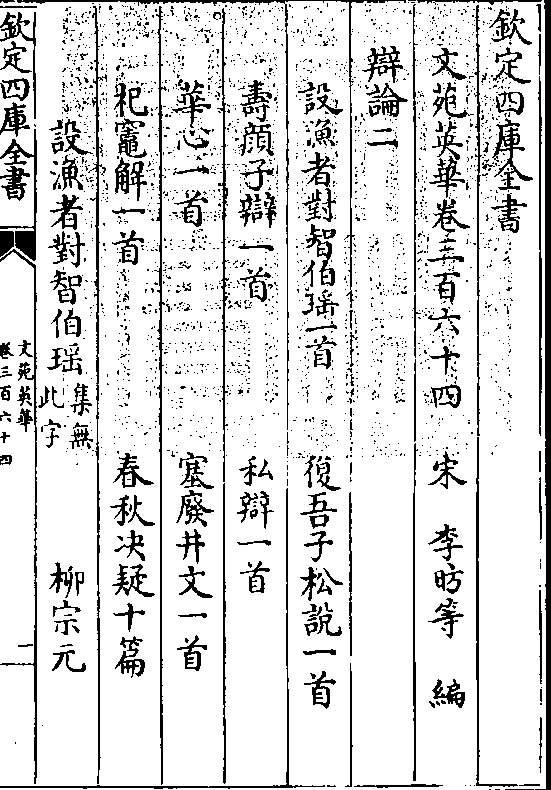 欽定四庫全書
文苑英華卷三百六十四　宋　李昉等　編
辯論二
設漁者對智伯瑶一首　復吾子松說一首
壽顔子辯一首　私辯一首
華心一首　塞廢井文一首
祀竈解一首　春秋决疑十篇
設漁者對智伯瑶集無此字　柳宗元
欽定四庫全書
文苑英華
卷三百六十四
一